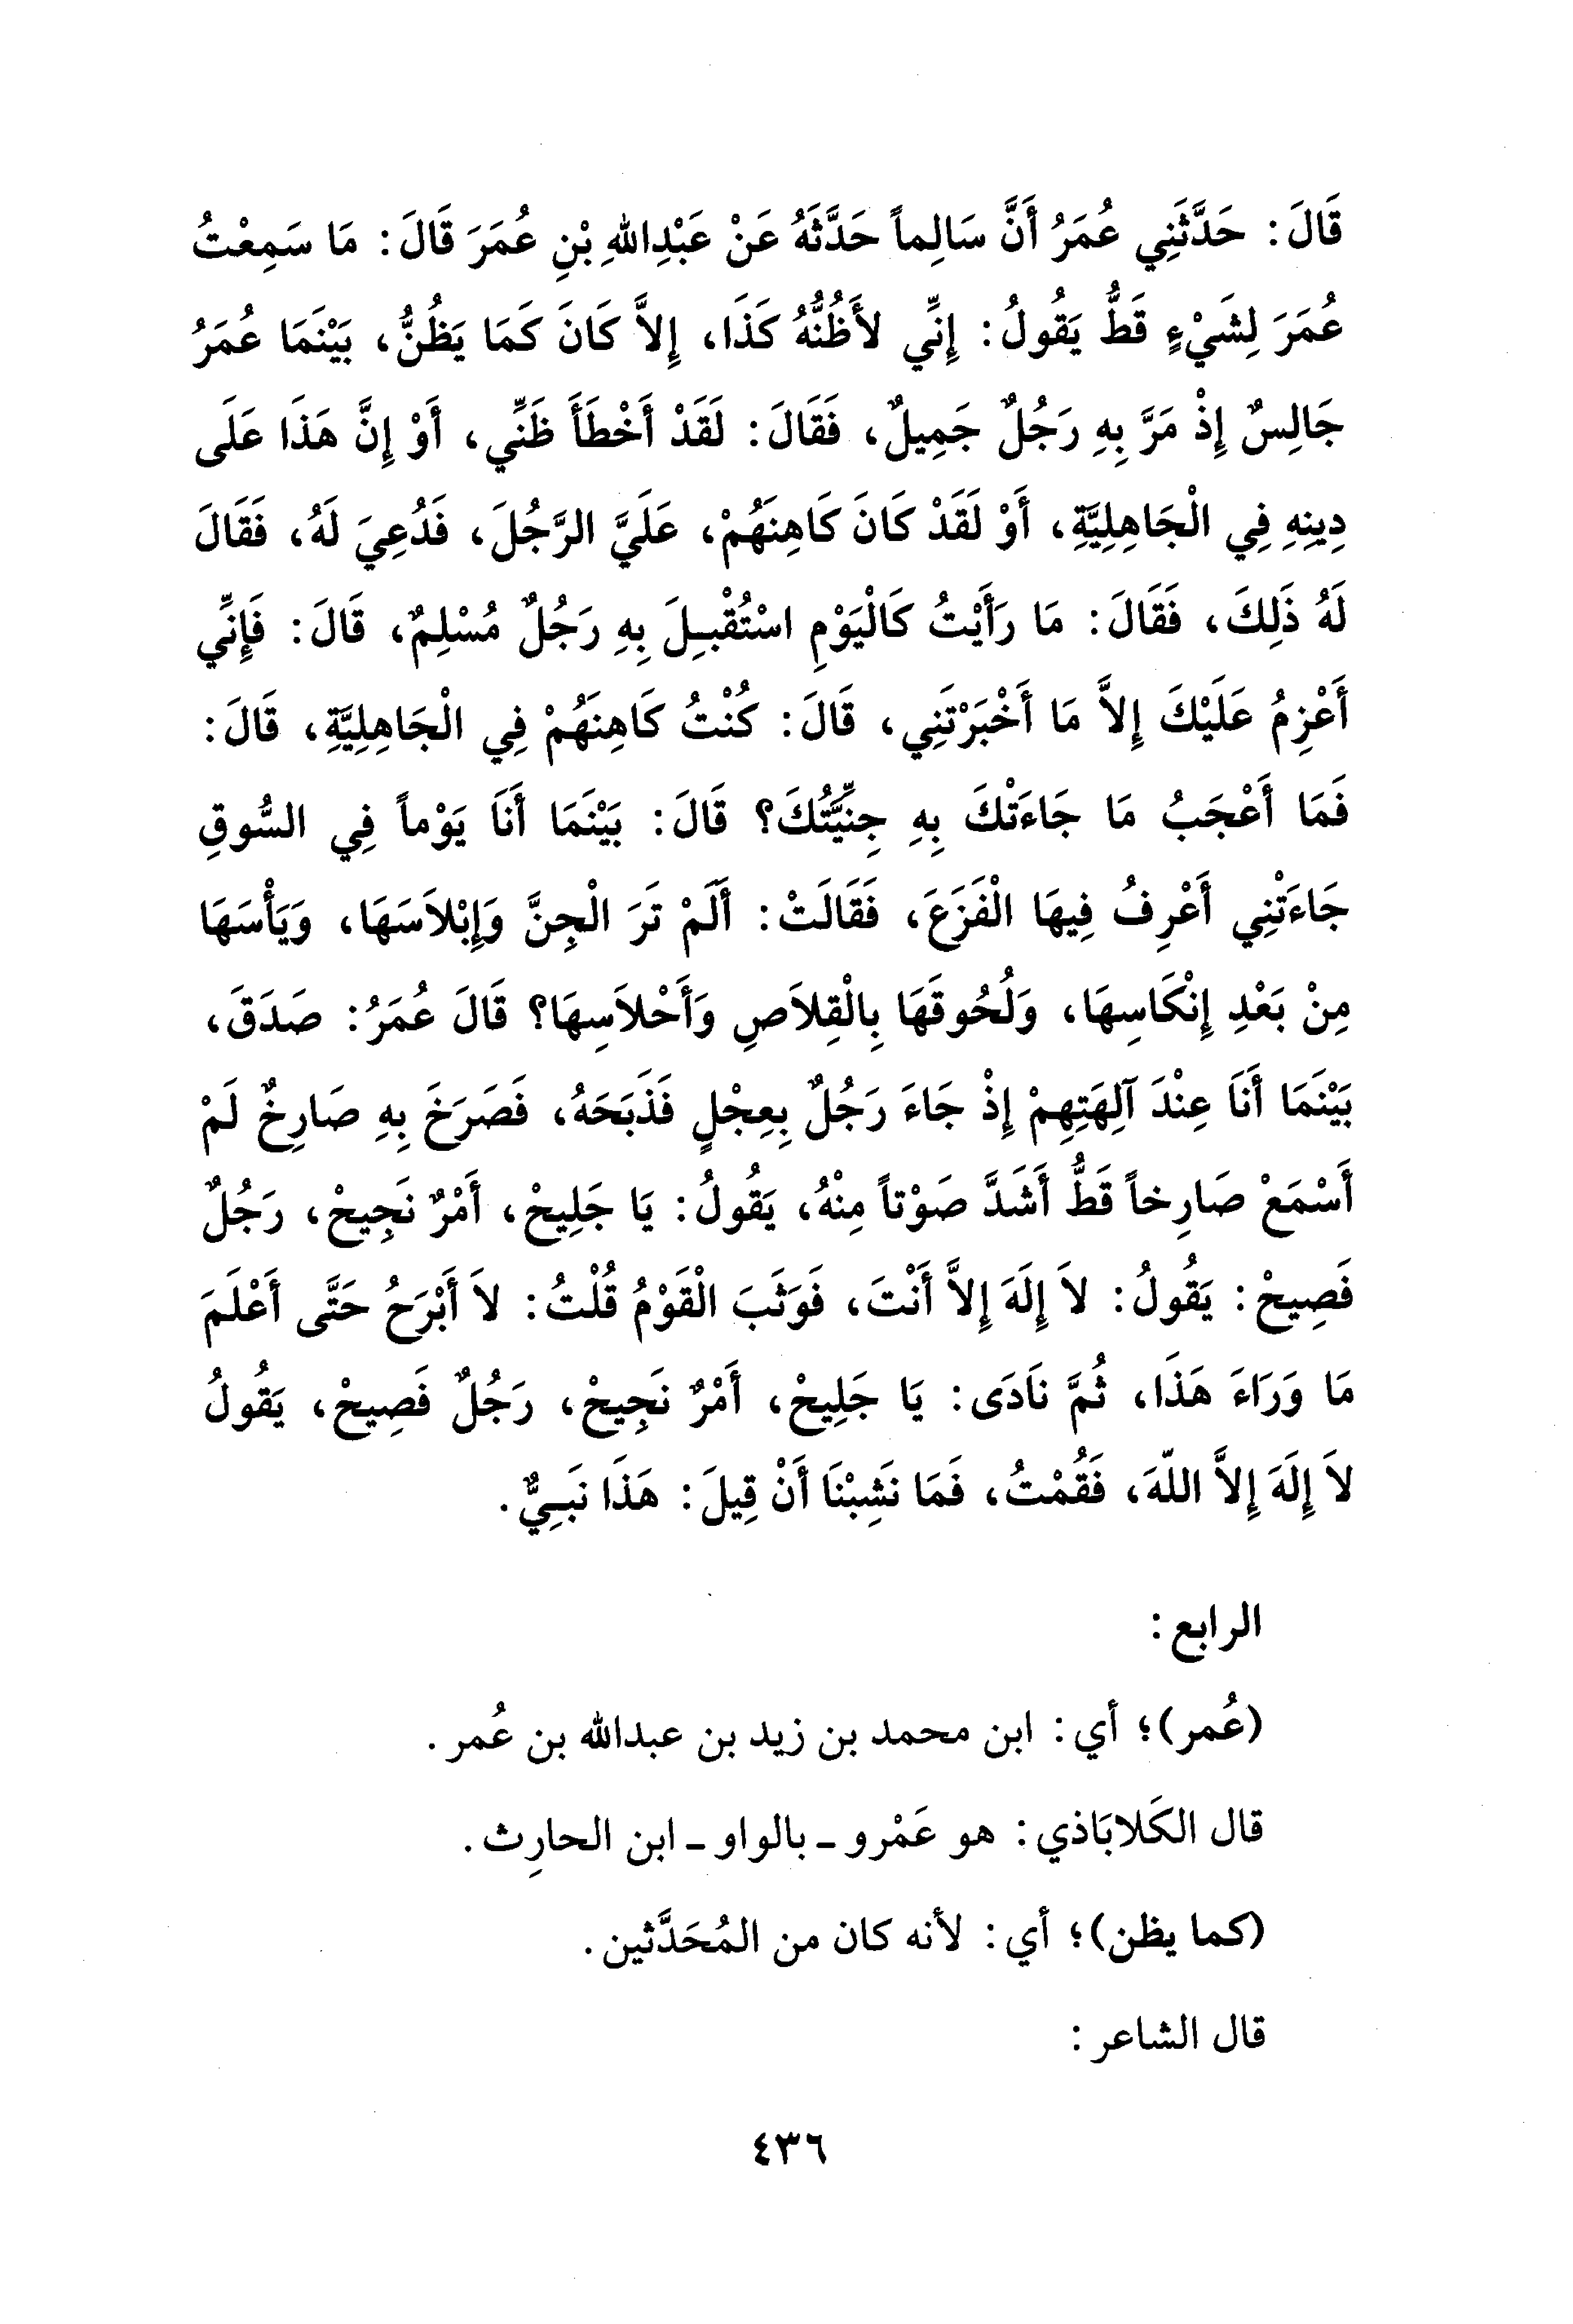 قَالَ: حَدَّثَنِي عُمَرُ أَنَّ سَالِماً حَدَّثَهُ عَنْ عَبْدِاللهِ بْنِ عُمَرَ قَالَ: مَا سَمِعْتُ
عُمَرَ لِشَيْءٍ قَطُّ يَقُولُ: إِنِّي لأَظُنُّهُ كَذَا، إِلاَّ كَانَ كَمَا يَظُنُّ، بَيْنَمَا عُمَرُ
جَالِسٌ إِذْ مَرَّ بِهِ رَجُلٌ جَمِيلٌ، فَقَالَ: لَقَدْ أَخْطَأَ ظَنِّي، أَوْ إِنَّ هَذَا عَلَى
دِينِهِ فِي الْجَاهِلِيَّةِ، أَوْ لَقَدْ كَانَ كَاهِنَهُمْ، عَلَيَّ الرَّجُلَ، فَدُعِيَ لَهُ، فَقَالَ
لَهُ ذَلِكَ، فَقَالَ: مَا رَأَيْتُ كَالْيَوْمِ اسْتُقْبِلَ بِهِ رَجُلٌ مُسْلِمٌ، قَالَ: فَإِنِّي
أَعْزِمُ عَلَيْكَ إِلاَّ مَا أَخْبَرْتَنِي، قَالَ: كُنْتُ كَاهِنَهُمْ فِي الْجَاهِلِيَّةِ، قَالَ:
فَمَا أَعْجَبُ مَا جَاءَتْكَ بِهِ جِنِّيَّتُكَ؟ قَالَ: بَيْنَمَا أَنَا يَوْماً فِي السُّوقِ
جَاءَتْنِي أَعْرِفُ فِيهَا الْفَزَعَ، فَقَالَتْ: أَلَمْ تَرَ الْجِنَّ وَإِبْلاَسَهَا، وَيَأْسَهَا
مِنْ بَعْدِ إِنْكَاسِهَا، وَلُحُوقَهَا بِالْقِلاَصِ وَأَحْلاَسِهَا؟ قَالَ عُمَرُ: صَدَقَ،
بَيْنَمَا أَنَا عِنْدَ آلِهَتِهِمْ إِذْ جَاءَ رَجُلٌ بِعِجْلٍ فَذَبَحَهُ، فَصَرَخَ بِهِ صَارِخٌ لَمْ
أَسْمَعْ صَارِخاً قَطُّ أَشَدَّ صَوْتاً مِنْهُ، يَقُولُ: يَا جَلِيحْ، أَمْرٌ نَجِيحْ، رَجُلٌ
فَصِيحْ: يَقُولُ: لاَ إِلَهَ إِلاَّ أَنْتَ، فَوَثَبَ الْقَوْمُ قُلْتُ: لاَ أَبْرَحُ حَتَّى أَعْلَمَ
مَا وَرَاءَ هَذَا، ثُمَّ نَادَى: يَا جَلِيحْ، أَمْرٌ نَجِيحْ، رَجُلٌ فَصِيحْ، يَقُولُ
لاَ إِلَهَ إِلاَّ اللّهَ، فَقُمْتُ، فَمَا نَشِبْنَا أَنْ قِيلَ: هَذَا نَبِيٌّ.
الرابع:
(عُمر)؛ أي: ابن محمد بن زيد بن عبدالله بن عُمر.
قال الكَلابَاذي: هو عَمْرو ـ بالواو ـ ابن الحارِث.
(كما يظن)؛ أي: لأنه كان من المُحَدَّثين.
قال الشاعر:
٤٣٦